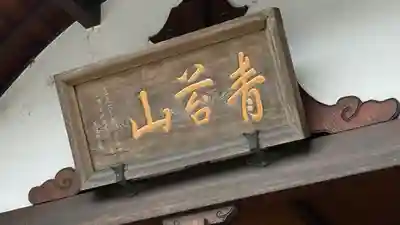 青苔山